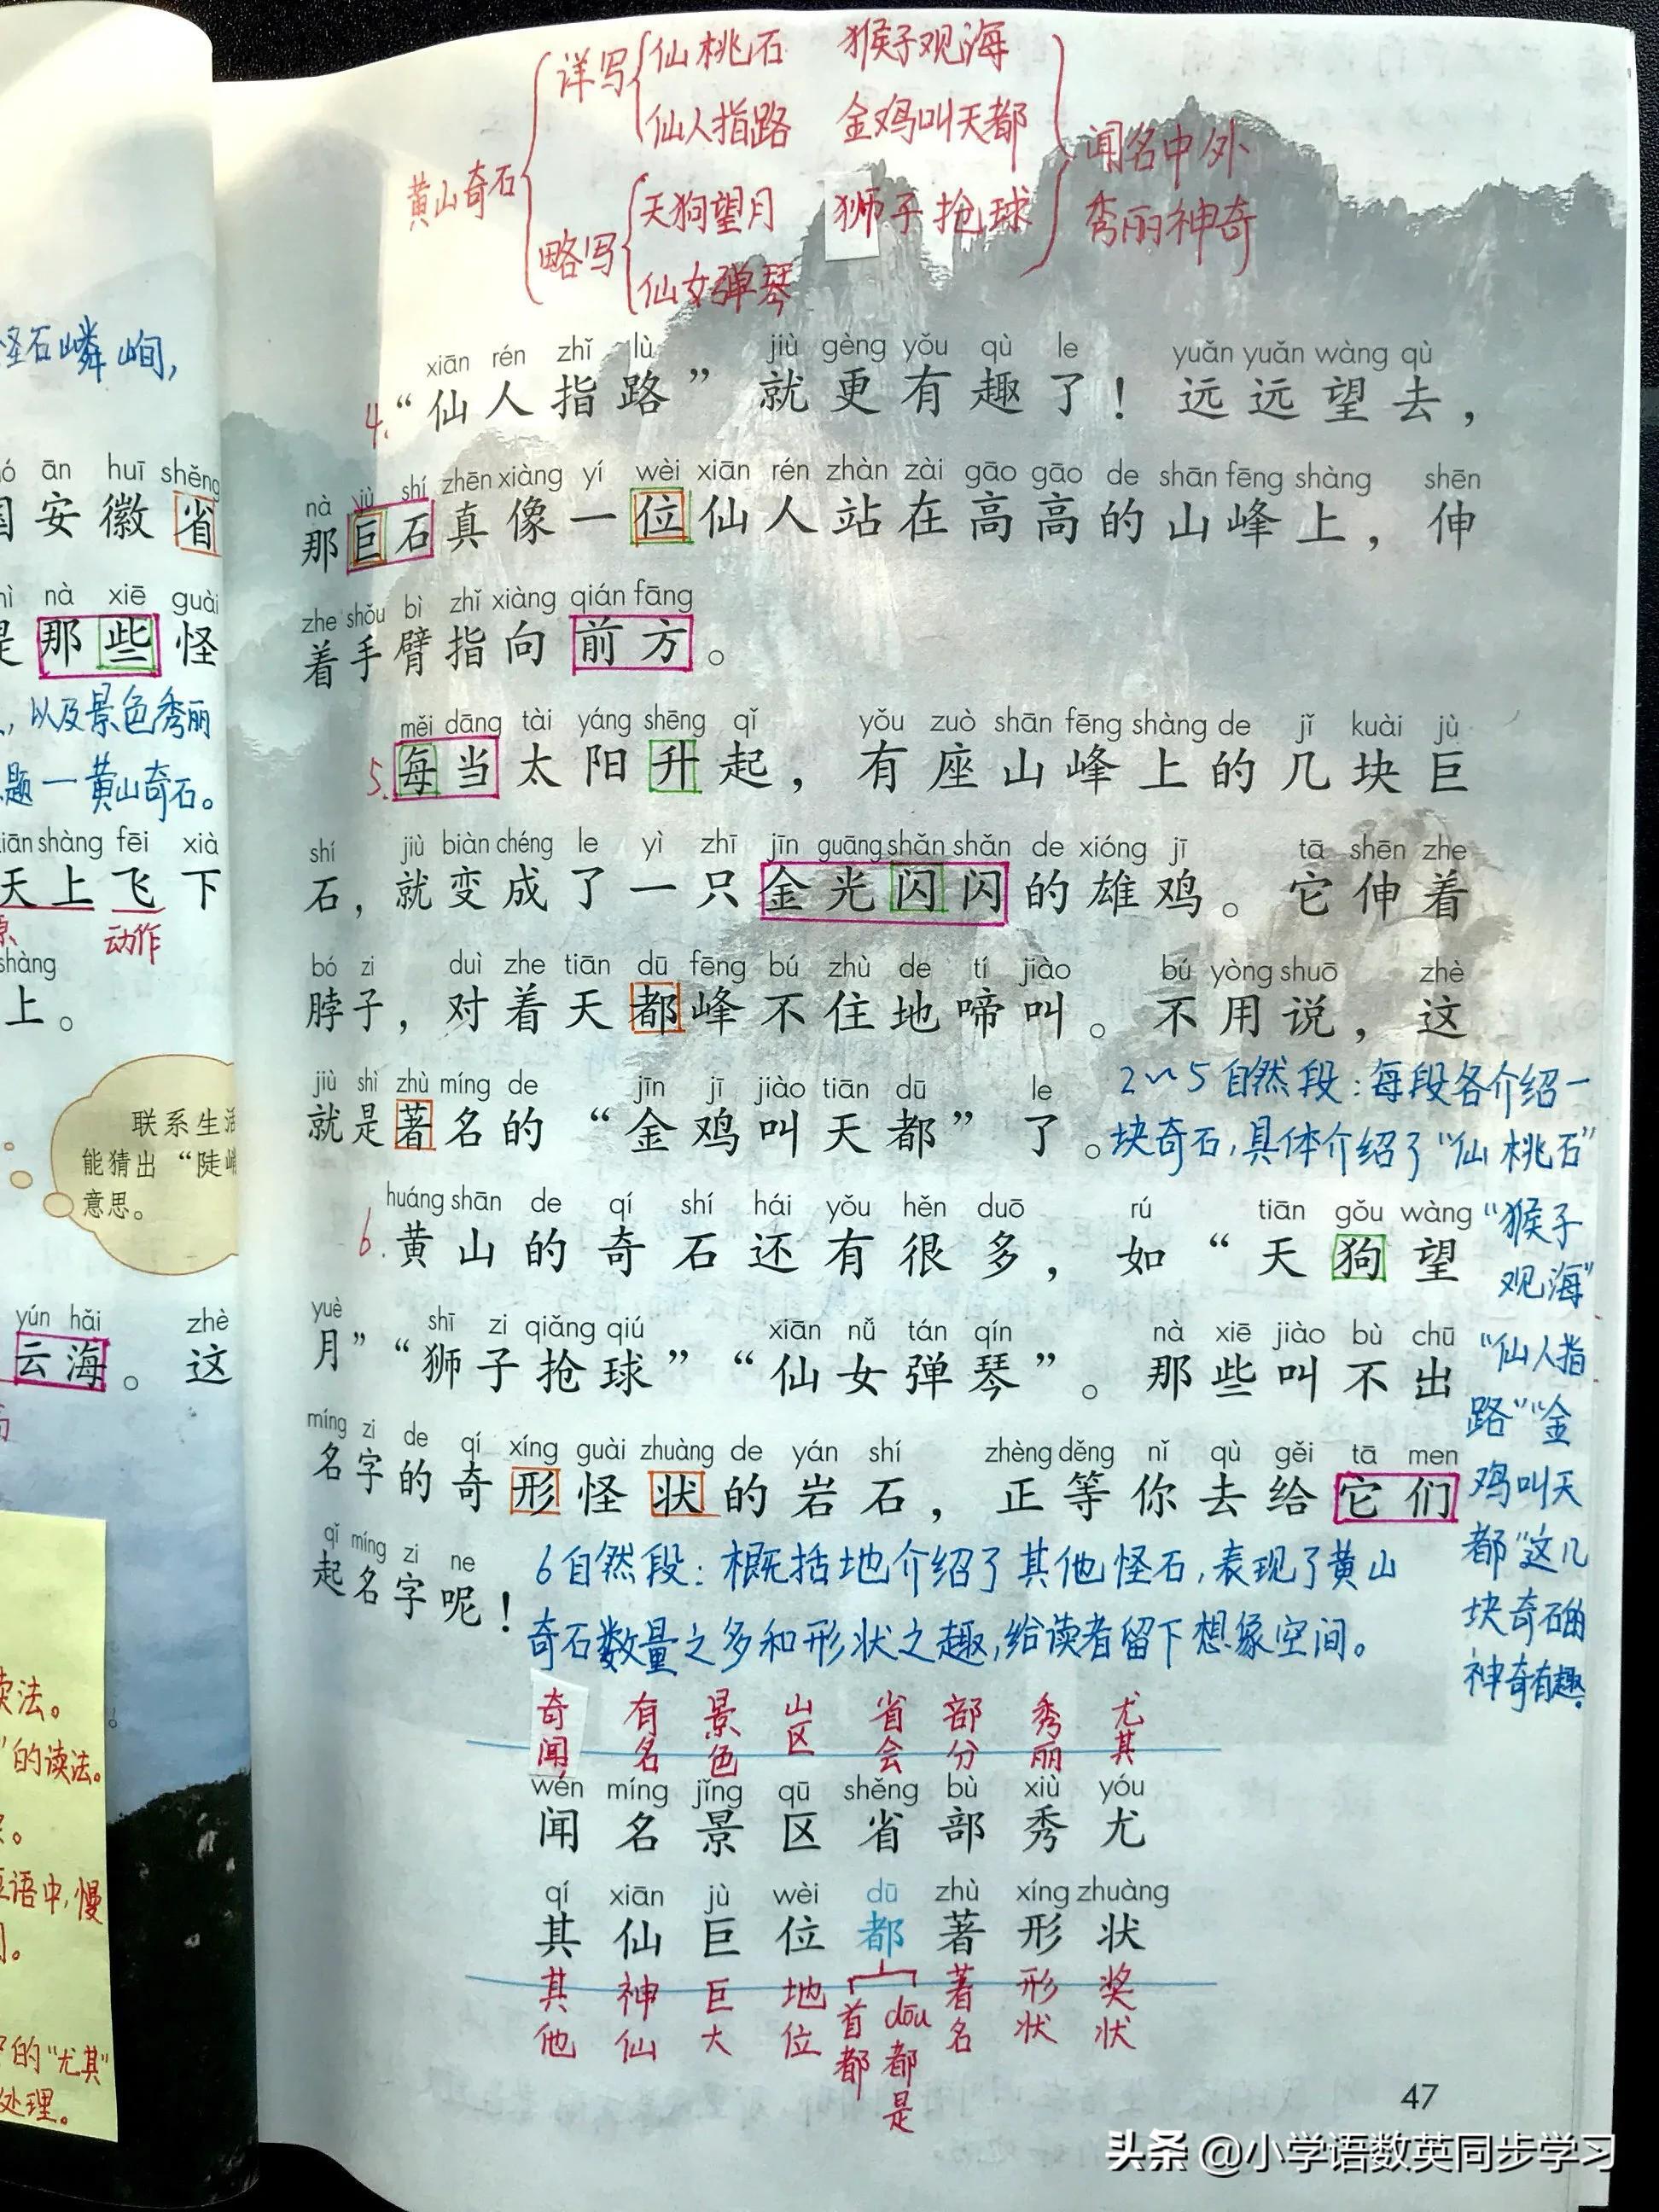 黄山奇石
详写
仙桃石 猴子观海
仙人指路 金鸡叫天都
略写
天狗望月 狮子抢球
仙女弹琴
闻名中外
秀丽神奇
怪石嶙峋,
ān huī shěng
安徽省
nà xiē guài
是那些怪
以及景色秀丽
题一黄山奇石。
shàng fēi xià
天上飞下
动作
shàng
上。
联系生活
能猜出“陡峭
意思。
yún hǎi zhè
云海。这
读法。
的读法。
语中,慢
的“尤其”
处理。
xiān rén zhǐ lù jiù gèng yǒu qù le yuǎn yuǎn wàng qù
4.“仙人指路”就更有趣了！远远望去，
nà jù shí zhēn xiàng yí wèi xiān rén zhàn zài gāo gāo de shān fēng shàng shēn
那巨石真像一位仙人站在高高的山峰上，伸
zhe shǒu bì zhǐ xiàng qián fāng
着手臂指向前方。
měi dāng tài yáng shēng qǐ yǒu zuò shān fēng shàng de jǐ kuài jù
5.每当太阳升起，有座山峰上的几块巨
shí jiù biàn chéng le yì zhī jīn guāng shǎn shǎn de xióng jī tā shēn zhe
石，就变成了一只金光闪闪的雄鸡。它伸着
bó zi duì zhe tiān dū fēng bú zhù de tí jiào bú yòng shuō zhè
脖子，对着天都峰不住地啼叫。不用说，这
jiù shì zhù míng de jīn jī jiào tiān dū le
就是著名的“金鸡叫天都”了。
2~5自然段:每段各介绍一
块奇石,具体介绍了“仙桃石”
“猴子
观海”
“仙人指
路”“金
鸡叫天
都”这几
块奇石的
神奇有趣。
huáng shān de qí shí hái yǒu hěn duō rú tiān gǒu wàng
6.黄山的奇石还有很多，如“天狗望
yuè shī zi qiǎng qiú xiān nǚ tán qín nà xiē jiào bù chū
月”“狮子抢球”“仙女弹琴”。那些叫不出
míng zi de qí xíng guài zhuàng de yán shí zhèng děng nǐ qù gěi tā men
名字的奇形怪状的岩石，正等你去给它们
qǐ míng zi ne
起名字呢！
6自然段:概括地介绍了其他怪石,表现了黄山
奇石数量之多和形状之趣,给读者留下想象空间。
奇闻 有名 景色 山区 省会 部分 秀丽 尤其
wén míng jǐng qū shěng bù xiù yóu
闻 名 景 区 省 部 秀 尤
qí xiān jù wèi dū zhù xíng zhuàng
其 仙 巨 位 都 著 形 状
其他 神仙 巨大 地位 首都 dōu都是 著名 形状 奖状
47
头条 @小学语数英同步学习